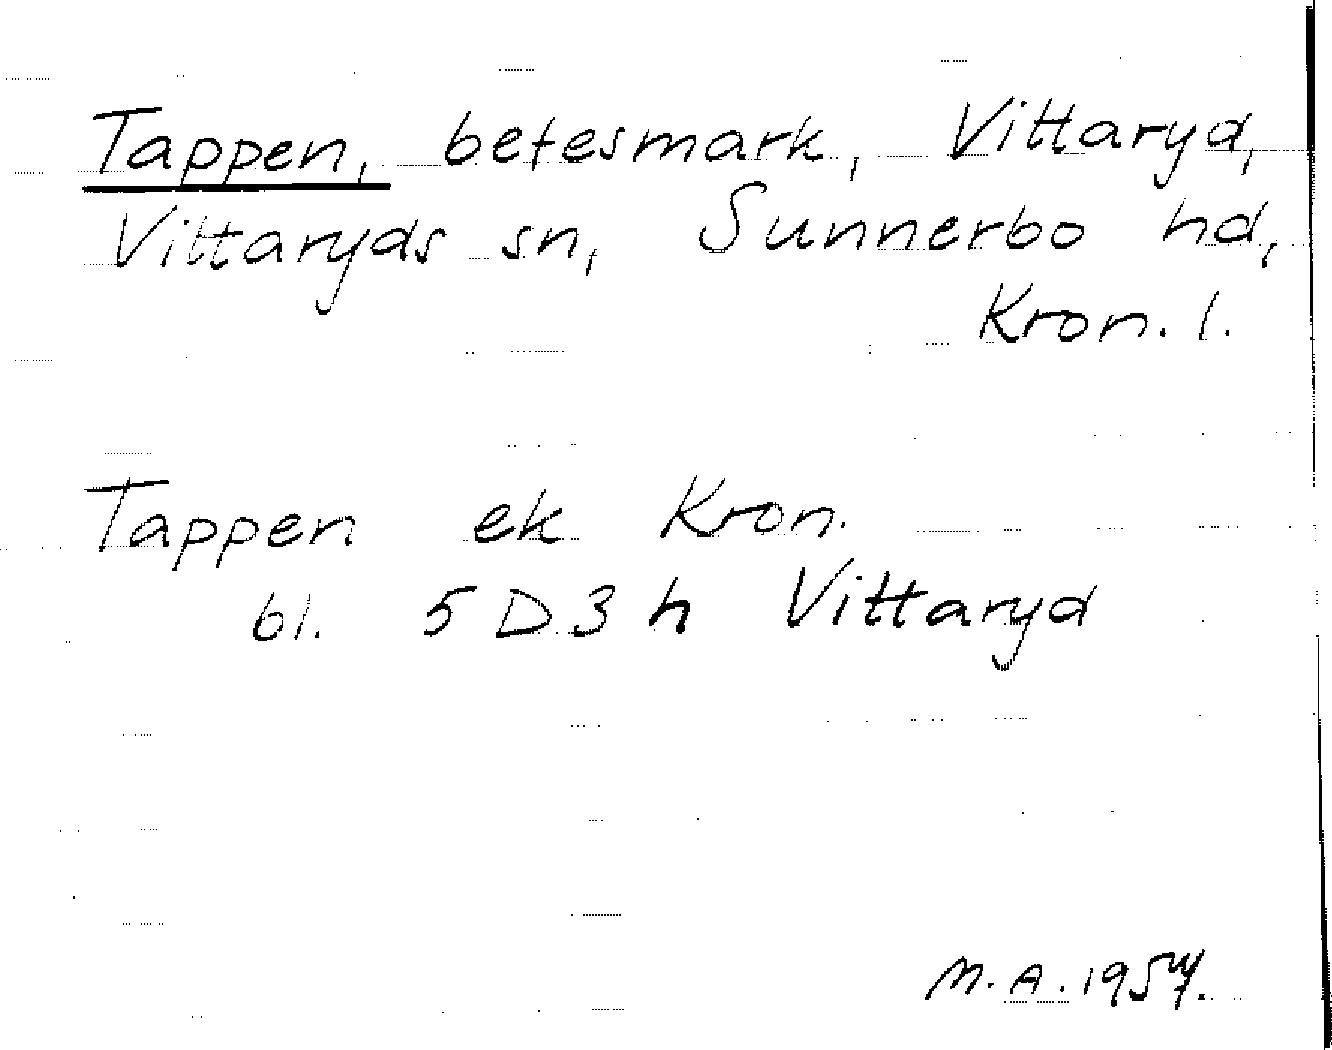 Tappen, betesmark, Vittaryd,
Vittaryds sn, Sunnerbo hd,
Kron. l.
Tappen ek Kron.
bl. 5 D 3 h Vittaryd
M.A. 1954.